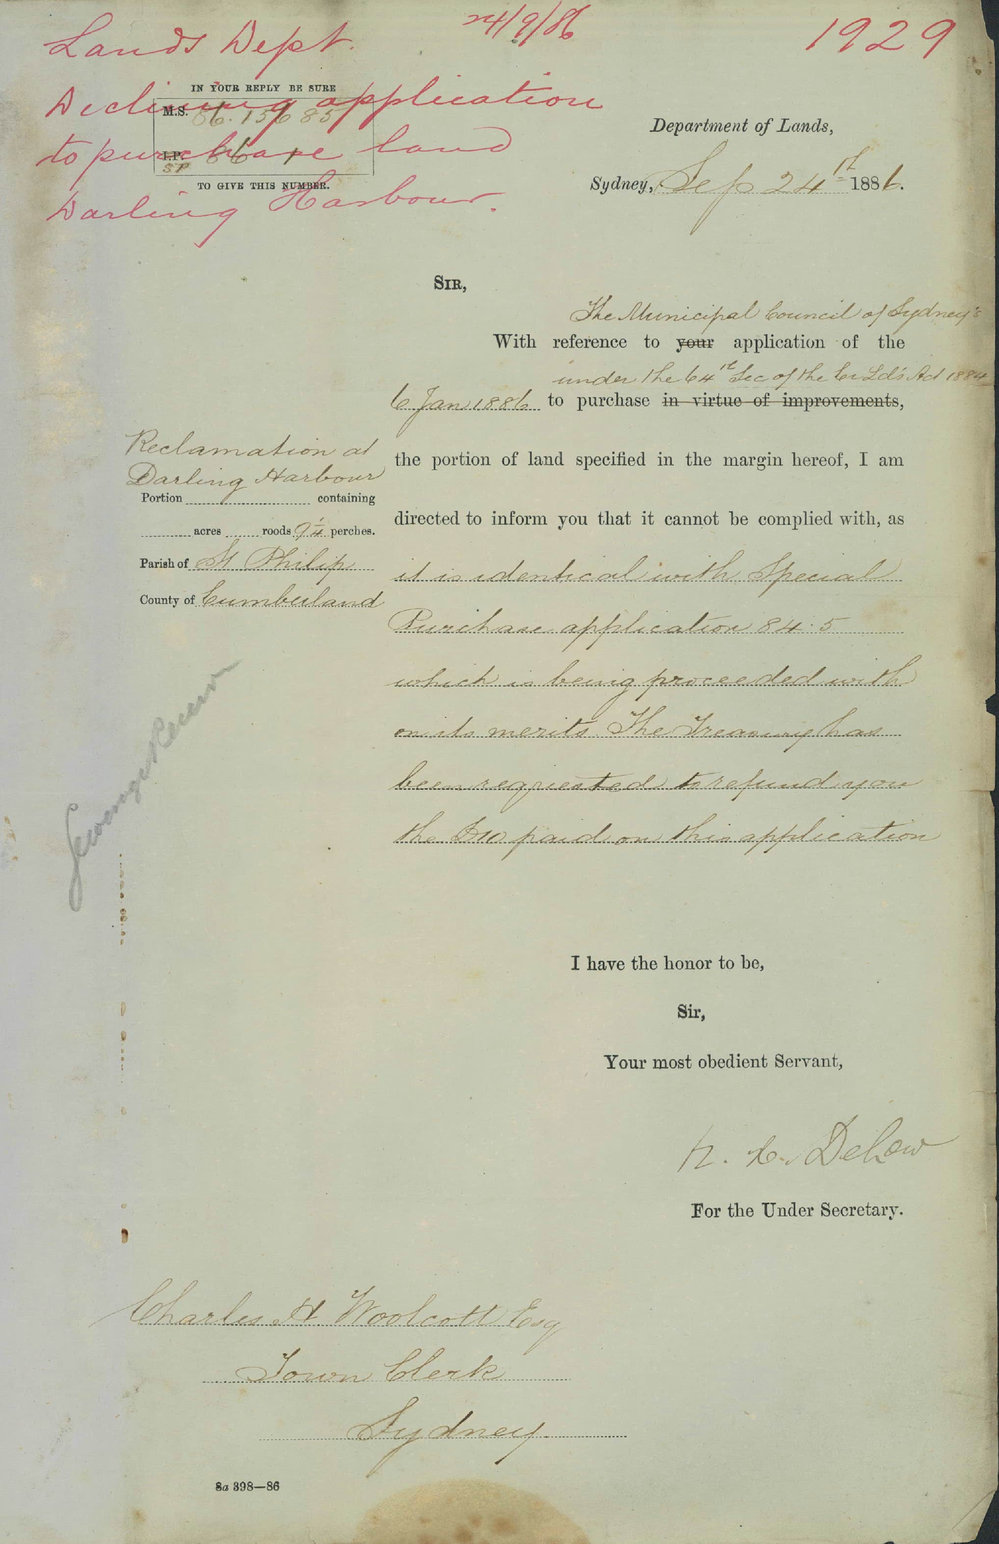 24/9/86
1929
Lands Dept.
Declining application
to purchase land
Darling Harbour.
IN YOUR REPLY BE SURE
M.S. 86. 15685
I.P. 86 1
SP
TO GIVE THIS NUMBER.
Department of Lands,
Sydney, Sep 24th 1886.
SIR,
The Municipal Council of Sydney's
With reference to your application of the
under the 64th Sec of the Cr Lds Act 1884
6 Jan 1886 to purchase in virtue of improvements,
the portion of land specified in the margin hereof, I am
directed to inform you that it cannot be complied with, as
it is identical with Special
Purchase application 84.5
which is being proceeded with
on its merits. The Treasury has
been requested to refund you
the £10 paid on this application
Reclamation at
Darling Harbour
Portion containing
acres roods 9¼ perches.
Parish of St Philip
County of Cumberland
I have the honor to be,
Sir,
Your most obedient Servant,
DeLow
For the Under Secretary.
Charles H. Woolcott Esq
Town Clerk
Sydney.
8a 398—86